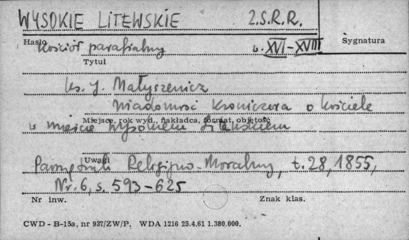 WYSOKIE LITEWSKIE Z.S.R.R.
Hasło Kościół parafialny w. XVI-XVIII Sygnatura
Tytuł
ks. J. Małyszewicz
Wiadomość Kroniczna o kościele
Miejsce, rok wyd., nakładca, format, objętość
w mieście Wysokiem Litewskiem
Uwagi
Pamiętnik Religijno-Moralny, t. 28, 1855,
Nr. 6, s. 593-625
Nr inw. Znak klas.
CWD - B-15a, nr 937/ZW/P, WDA 1216 23.4.61 1.380.000.